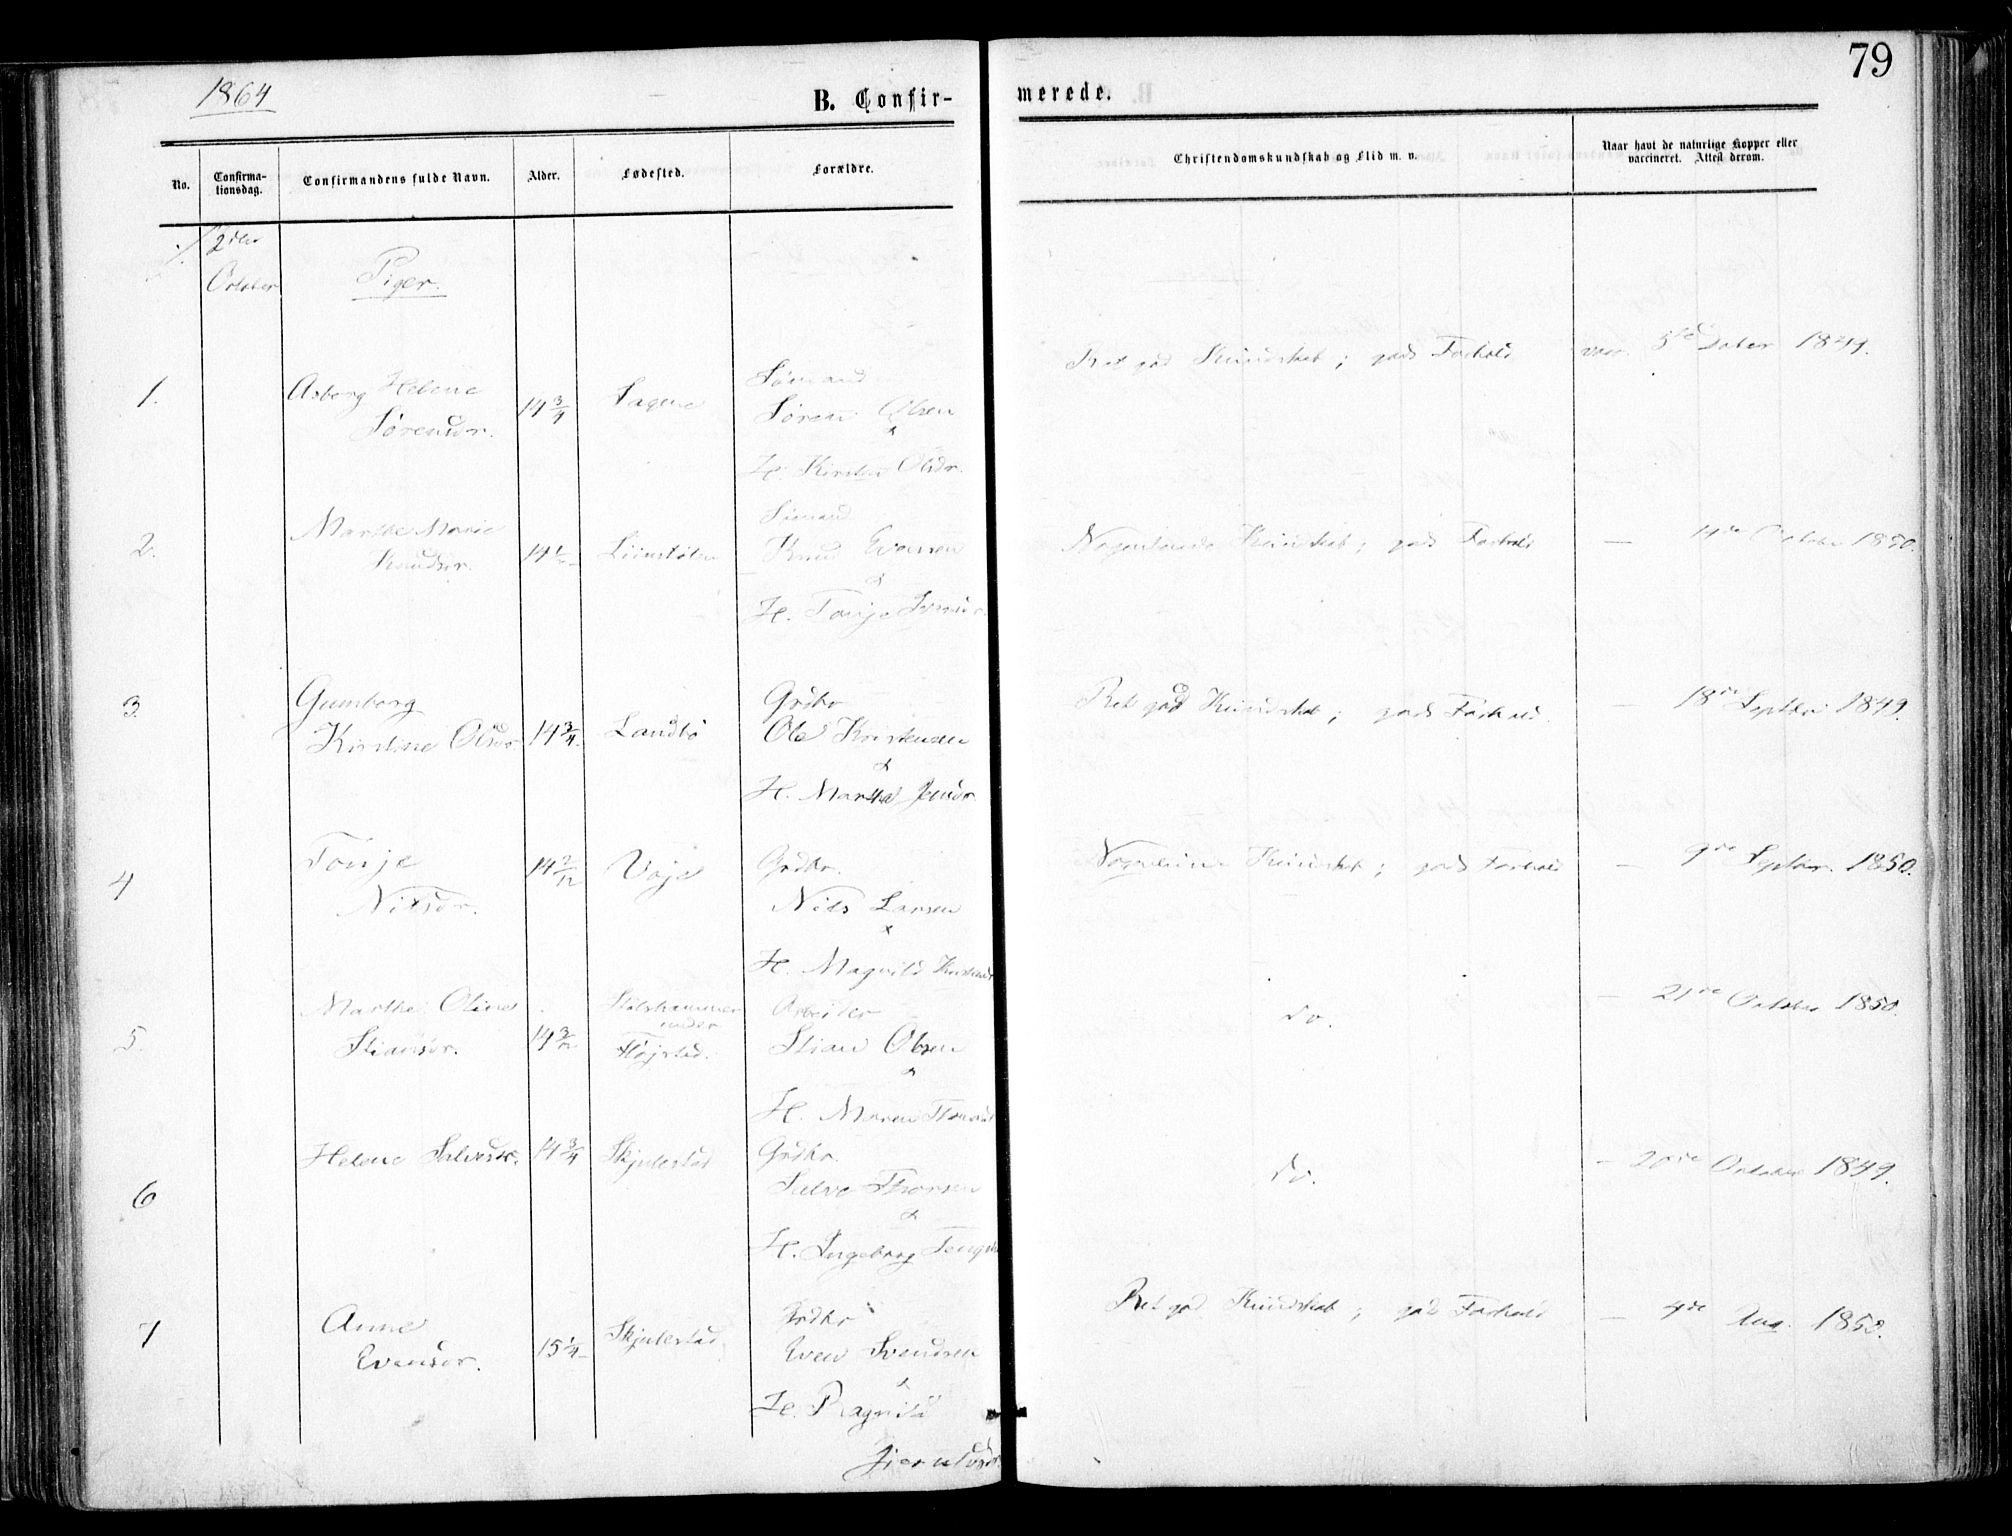 79
1864
B. Confir-
merede.
No.
Confirma-
tionsdag.
Confirmandens fulde Navn.
Alder.
Fødested.
Forældre.
Christendomskundskab og Flid m. v.
Naar havt de naturlige Kopper eller
vaccineret. Attest derom.
October
Piger.
1.
Asborg Helene
Sørensdr.
14 3/4
Sagene
Sømand
Søren Olsen
H. Kirsten Olsdr.
Ret god Kundskab; gods Forhold
1849.
2.
Marthe Marie
Knudsdr.
14
Sømand
Knud Evensen
&
H. Tonje
Nogenlunde Kundskab; gods Forhold
— October 1850.
3.
Gunborg
Kirstine Olsdr.
14 3/4
Landbø
Grdbr
Ole Kristensen
&
H. Martha Jensdr.
Ret god Kundskab; gods Forhold.
— 18de Septbr 1849.
4
Tonje
Nilsdr.
14 2/12
Voje
Grdbr.
Nils Larsen
H. Magnild
Kundskab; gods Forhold
— 9de Septbr. 1850.
5.
Marthe Oline
Stiansdr.
14
under
Arbeider
Stian Olsen
&
H. Maren
do.
— 21de October 1850.
6
Helene Salvesdr.
14 3/4
Skjulestad
Grdbr.
Salve Thorsen
&
H. Ingeborg
do.
— October 1849.
7
Anne
Evensdr.
15 1/4
Skjulestad
Grdbr
Even Svendsen
&
H. Ragnild
Ret god Kundskab; gods Forhold
— 4de Aug. 1852.